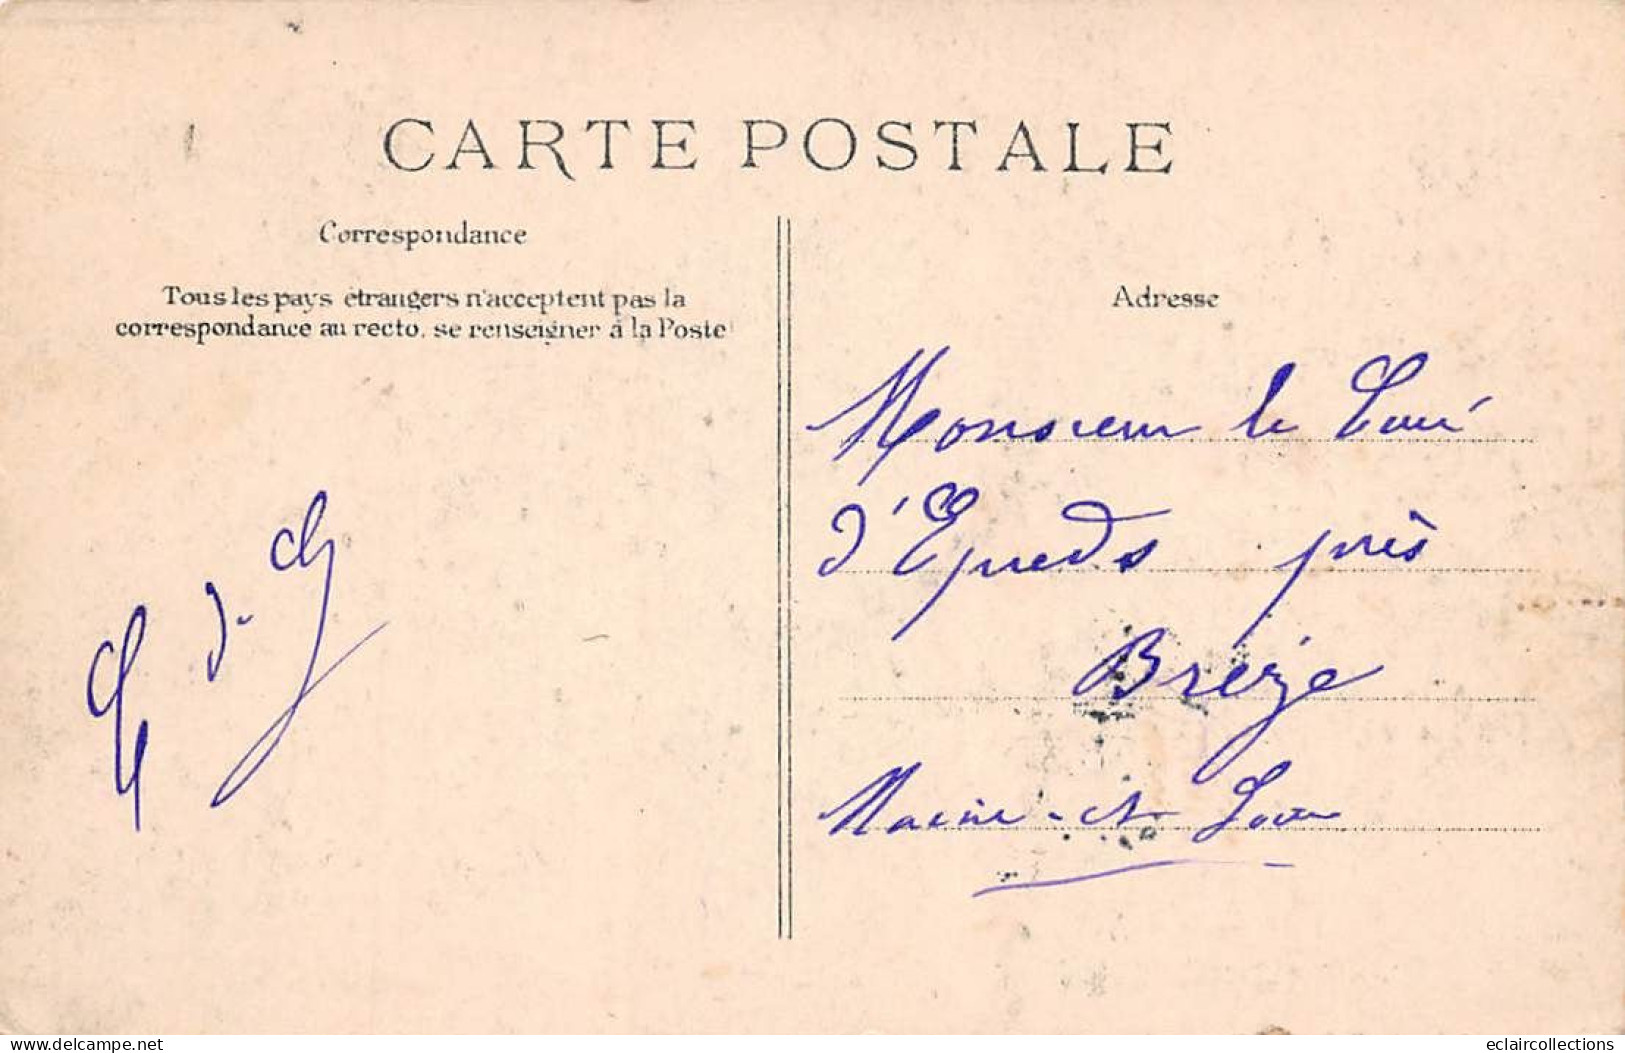 CARTE POSTALE
Correspondance
Tous les pays étrangers n'acceptent pas la
correspondance au recto, se renseigner à la Poste
Adresse
Monsieur le Curé
d'Epieds près
Brézé
Maine-et-Loire
www.delcampe.net
eclaircollections